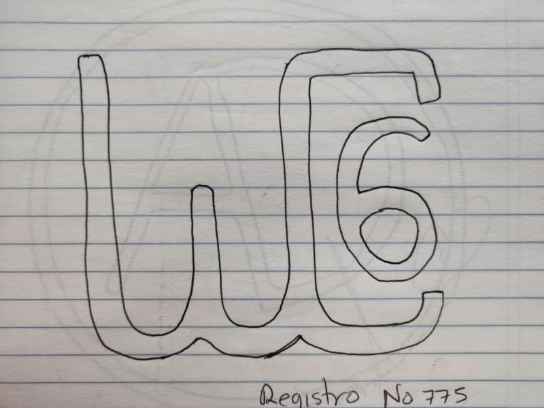 WC6
Registro No 775